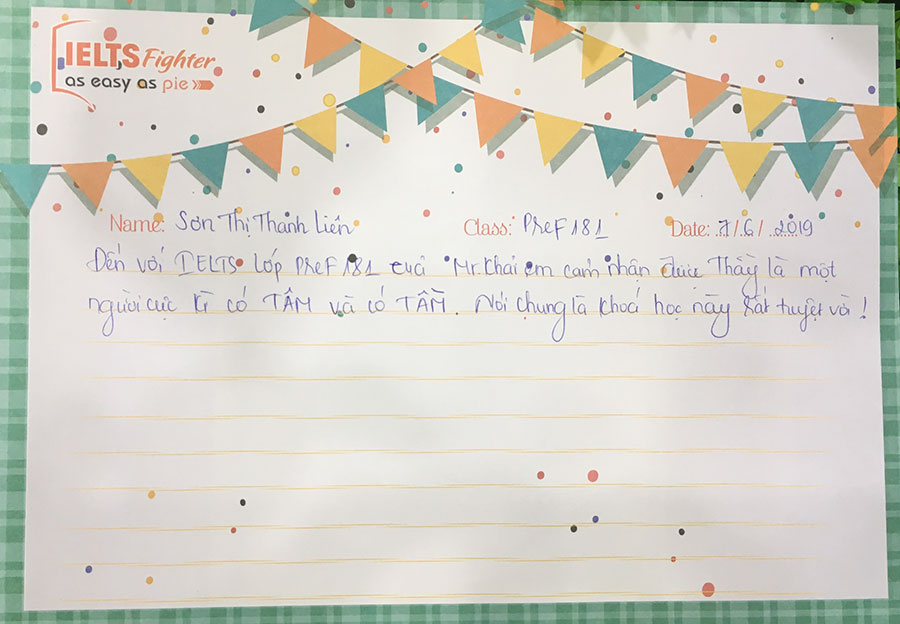 IELTS Fighter
as easy as pie
Name: Sơn Thị Thanh Liên Class: PReF181 Date: 7/6/2019
Đến với IELTS lớp PReF181 cuả Mr.Khải em cảm nhận được Thầy là một
người cực kì có TÂM và có TẦM. Nói chung là khoá học này rất tuyệt vời!